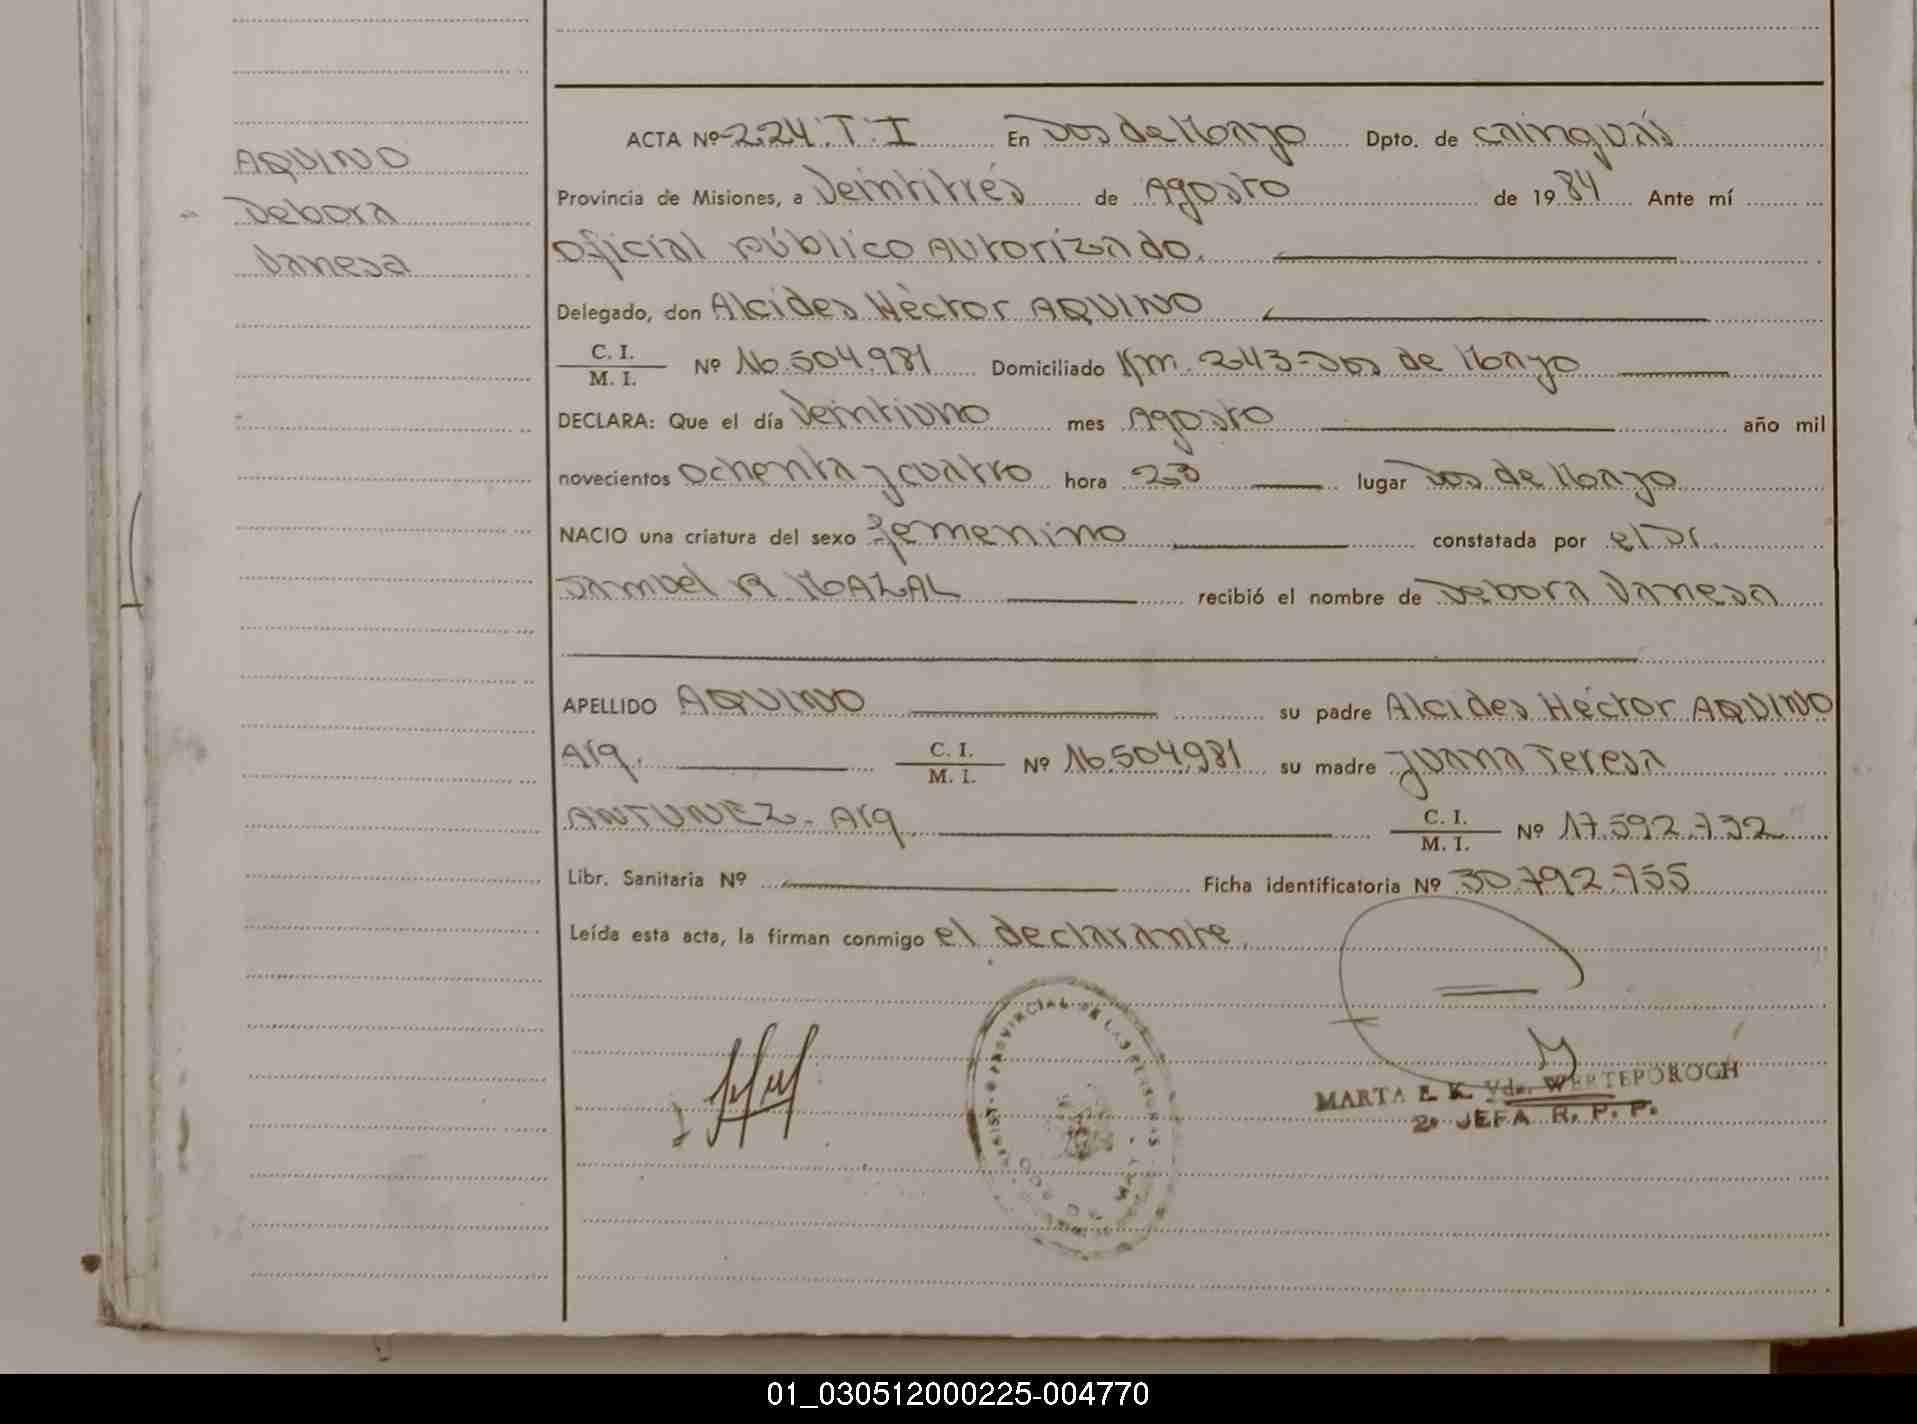 AQUINO
Debora
Vanesa
ACTA Nº 224. T. I En Dos de Mayo Dpto. de Cainguás
Provincia de Misiones, a Veintitrés de Agosto de 1984 Ante mí
Oficial Público Autorizado.
Delegado, don Alcides Héctor AQUINO
C. I.
M. I. Nº 16.504.981 Domiciliado Km. 243-Dos de Mayo
DECLARA: Que el día Veintiuno mes Agosto año mil
novecientos Ochenta y cuatro hora 23 lugar Dos de Mayo
NACIO una criatura del sexo femenino constatada por el Dr.
Samuel R. MAZAL recibió el nombre de Debora Vanesa
APELLIDO AQUINO su padre Alcides Héctor AQUINO
Arq. C. I.
M. I. Nº 16.504.981 su madre Juana Teresa
ANTUNEZ- Arq. C. I.
M. I. Nº 17.592.732
Libr. Sanitaria Nº Ficha identificatoria Nº 30.792.755
Leída esta acta, la firman conmigo el declarante.
PROVINCIAL DE LAS PERSONAS
MARTA E. K. Vda. WERTEPOROGH
2º JEFA R. P. P.
01_030512000225-004770